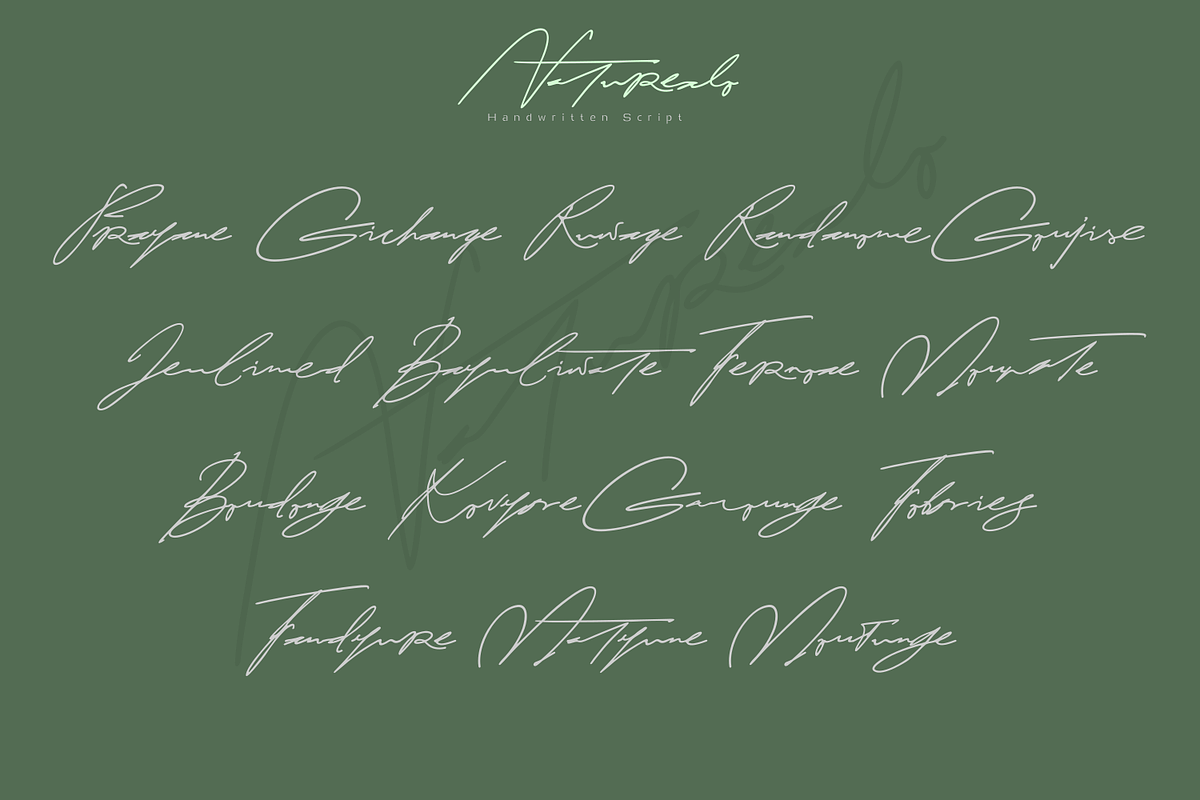 Naturealo
Handwritten Script
Prayane Gichange Ruwage Randanome Goujise
Jenlimed Bayuliwate Fernoae Nounate
Boudonge Xovyore Garounge Fobories
Fandyure Natyune Noutunge